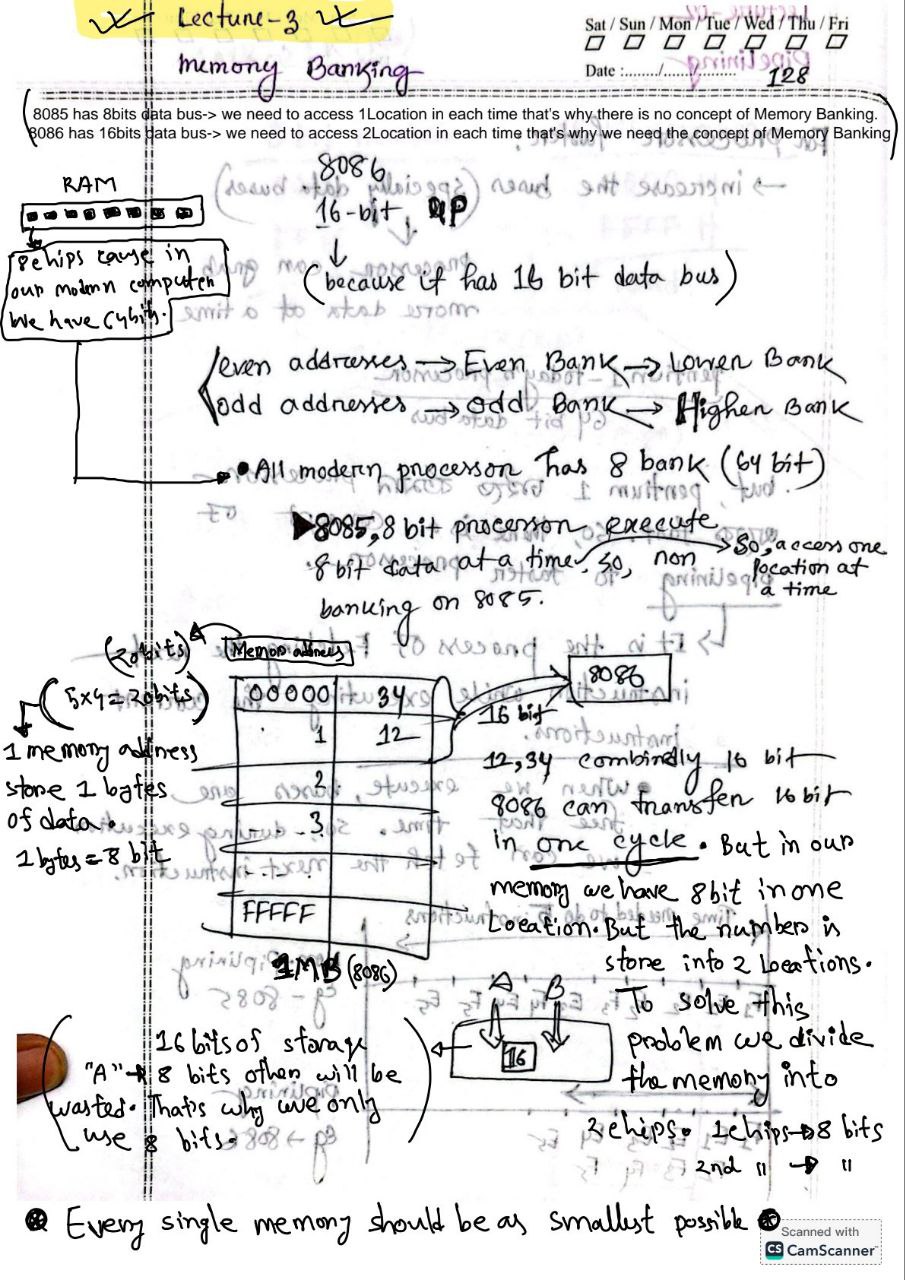 Lecture-3
Memory Banking
Sat / Sun / Mon / Tue / Wed / Thu / Fri
Date :......../........................
128
8085 has 8bits data bus-> we need to access 1Location in each time that's why there is no concept of Memory Banking.
8086 has 16bits data bus-> we need to access 2Location in each time that's why we need the concept of Memory Banking
8086
16-bit μP
(because it has 16 bit data bus)
RAM
8chips cause in
our modern computer
We have 64bit.
even addresses → Even Bank → Lower Bank
odd addresses → odd Bank → Higher Bank
• All modern processor has 8 bank (64 bit)
▶8085, 8 bit processor execute
8 bit data at a time. So, non
banking on 8085.
So, access one
location at
a time
(20bits)
Memory address
(5x4=20bits)
1 memory address
store 1 bytes
of data.
1 bytes = 8 bit
00000 34
1 12
2
3
FFFFF
1MB (8086)
8086
16 bit
12,34 combindly 16 bit
8086 can transfer 16 bit
in one cycle. But in our
memory we have 8bit in one
Location. But the number is
store into 2 locations.
To solve this
problem we divide
the memory into
2 chips. 1chips→8 bits
2nd " → "
A B
16
16 bits of storage
"A"→ 8 bits other will be
wasted. That's why we only
use 8 bits.
Every single memory should be as smallest possible
Scanned with
CS CamScanner